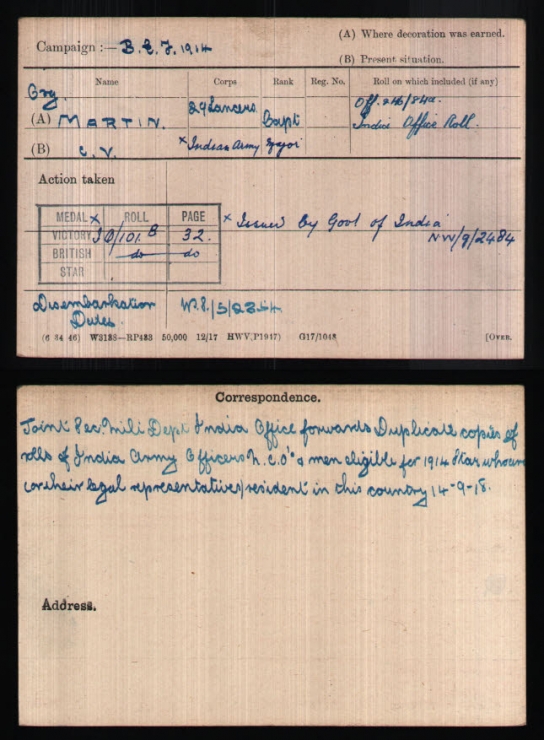 Campaign :— B.E.F. 1914
(A) Where decoration was earned.
(B) Present situation.
Name Corps Rank Reg. No. Roll on which included (if any)
(A) MARTIN. 29 Lancers Capt Off. 246/84a.
India Office Roll.
(B) C.V. × Indian Army Major
Action taken
MEDAL × ROLL PAGE × Issued by Govt of India
VICTORY IO/101 B 32. NW/9/2484
BRITISH do do
STAR
Disembarkation
Dates.
(6 34 46) W3188—RP488 50,000 12/17 HWV(P1947) G17/1048 [OVER.
Correspondence.
Joint Sec. Mili Dept India Office forwards Duplicate copies of
rolls of India Army Officers N.C.O's & men eligible for 1914 Star who are
(or their legal representatives) resident in this country 14-9-18.
Address.